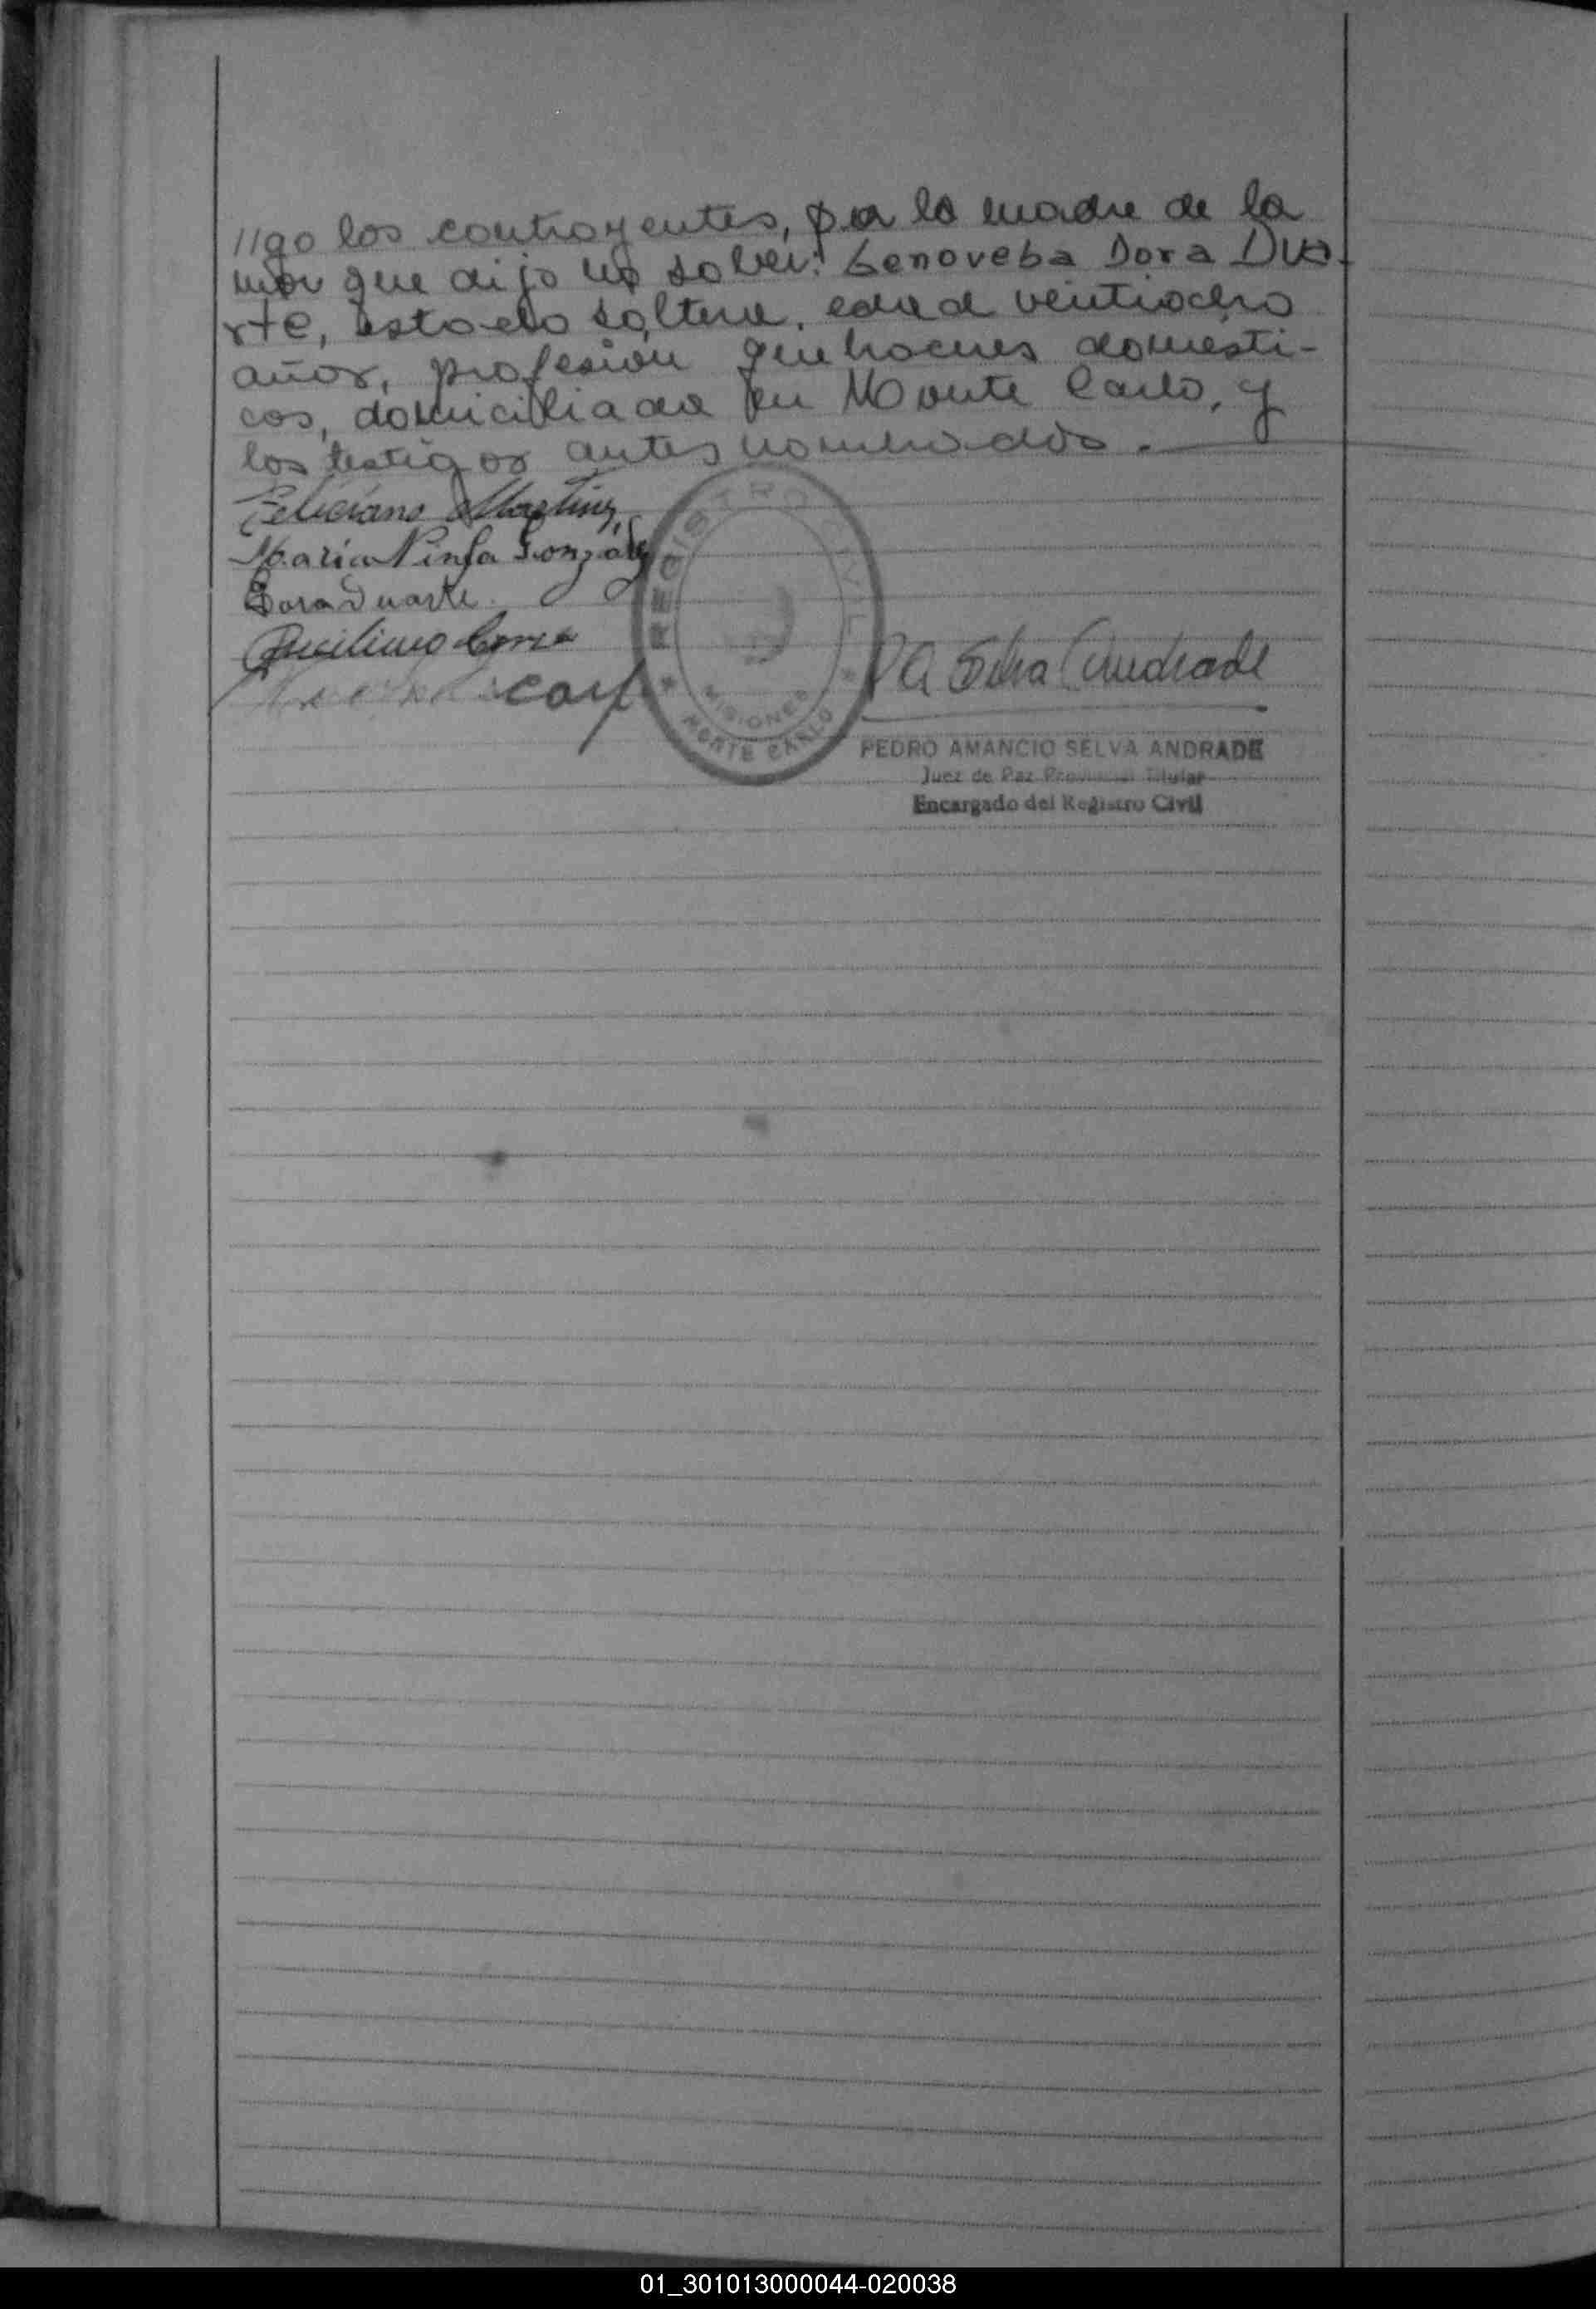 //go los contrayentes, por la madre de la
mor que dijo no saber: Genoveba Dora Dua-
rte, estado soltera, edad veintiocho
años, profesión quehaceres domésti-
cos, domiciliada en Monte Carlo, y
los testigos antes nombrados.
Feliciano Martinez
María Ninfa González
Dora Duarte
REGISTRO CIVIL
MISIONES
MONTE CARLO
PA Selva Andrade
PEDRO AMANCIO SELVA ANDRADE
Juez de Paz Provincial Titular
Encargado del Registro Civil
01_301013000044-020038